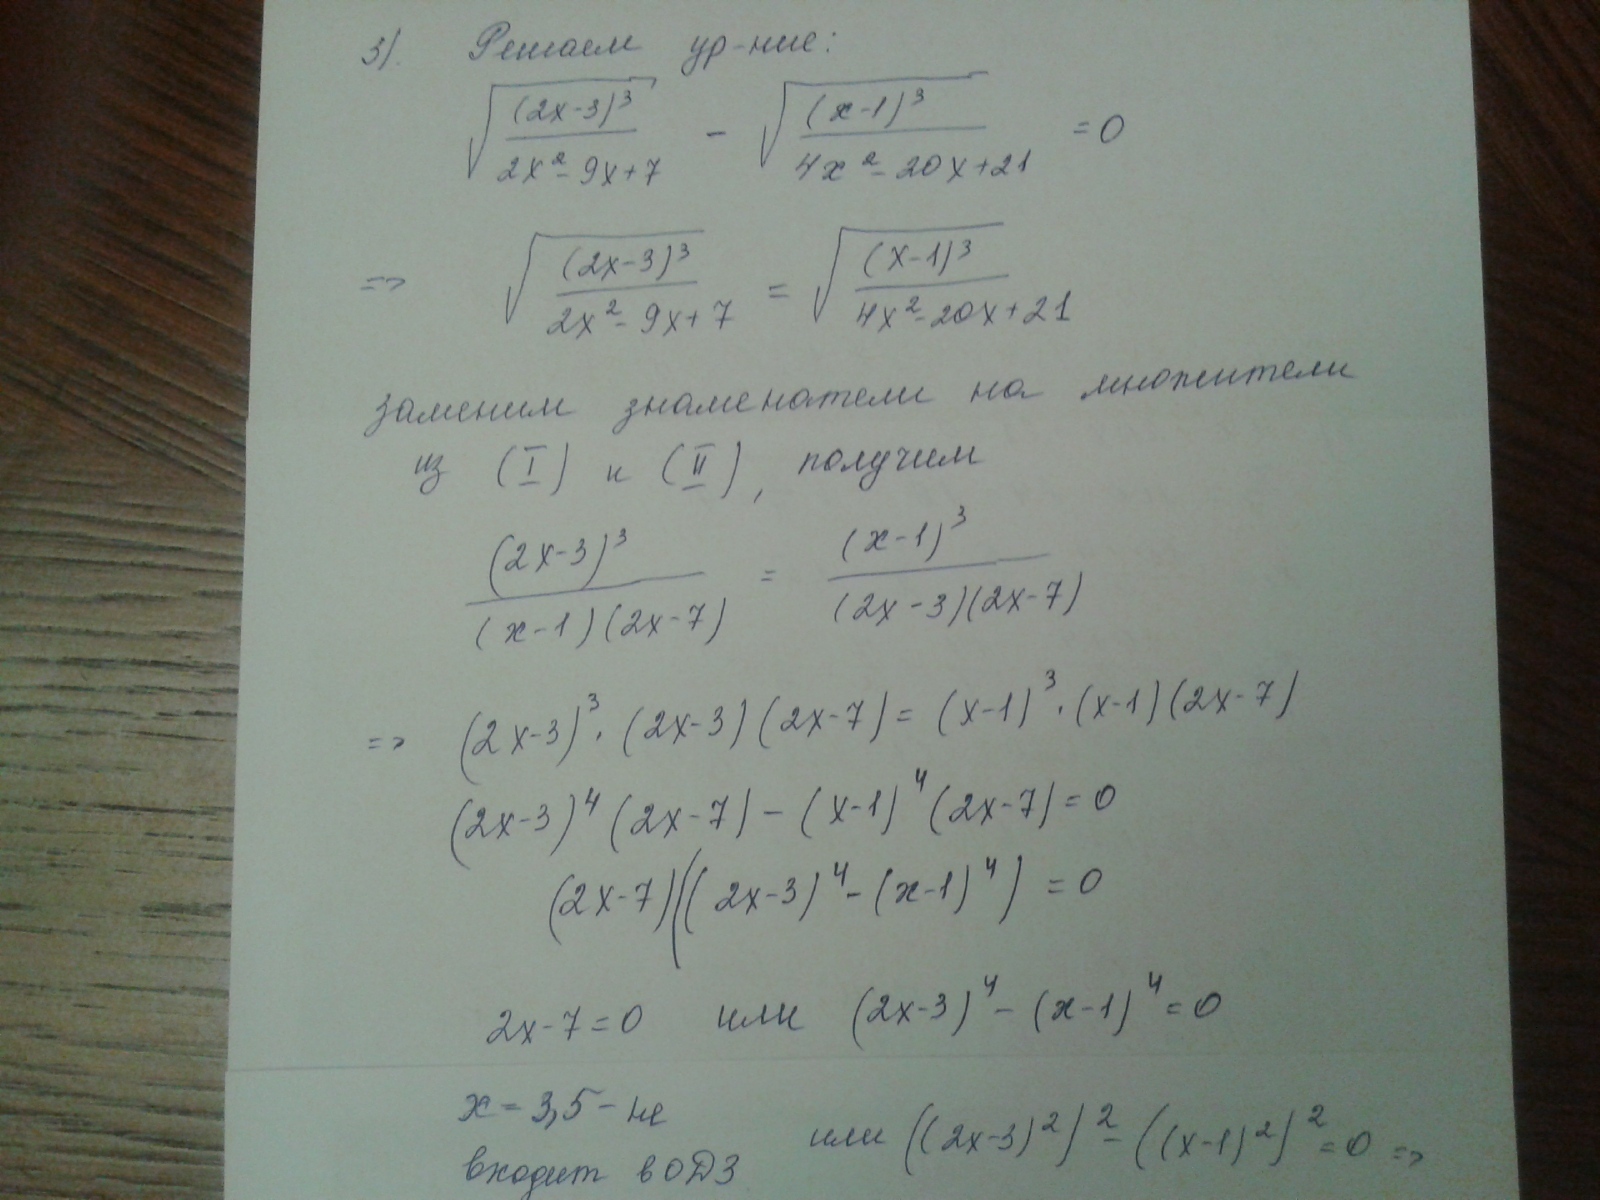 3). Решаем ур-ние:
√((2x-3)³/(2x²-9x+7)) - √((x-1)³/(4x²-20x+21)) = 0
=> √((2x-3)³/(2x²-9x+7)) = √((x-1)³/(4x²-20x+21))
заменим знаменатели на множители
из (I) и (II), получим
(2x-3)³/((x-1)(2x-7)) = (x-1)³/((2x-3)(2x-7))
=> (2x-3)³·(2x-3)(2x-7) = (x-1)³·(x-1)(2x-7)
(2x-3)⁴(2x-7) - (x-1)⁴(2x-7) = 0
(2x-7)((2x-3)⁴-(x-1)⁴) = 0
2x-7=0 или (2x-3)⁴-(x-1)⁴=0
x=3,5 - не
входит в ОДЗ
или ((2x-3)²)²-((x-1)²)²=0 =>